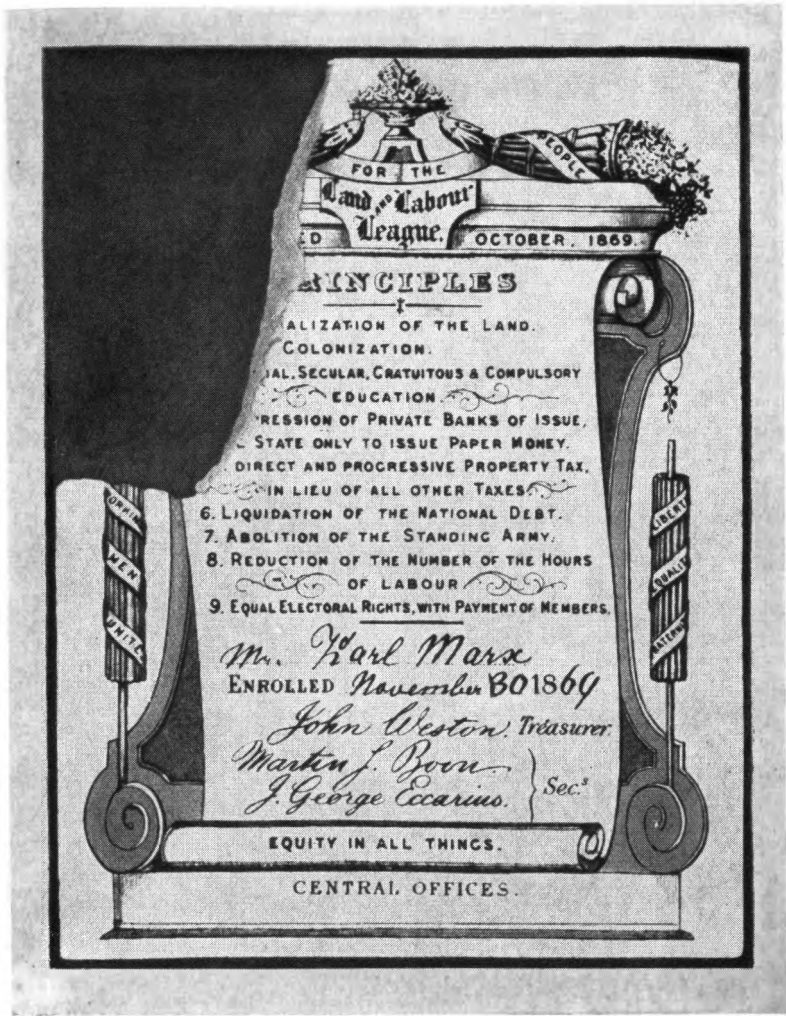 PEOPLE
FOR THE
Land AND Labour
League.
ED OCTOBER, 1869.
RINCIPLES
ALIZATION OF THE LAND.
COLONIZATION.
IAL, SECULAR, GRATUITOUS & COMPULSORY
EDUCATION.
RESSION OF PRIVATE BANKS OF ISSUE,
STATE ONLY TO ISSUE PAPER MONEY.
DIRECT AND PROGRESSIVE PROPERTY TAX,
IN LIEU OF ALL OTHER TAXES.
6. LIQUIDATION OF THE NATIONAL DEBT.
7. ABOLITION OF THE STANDING ARMY.
8. REDUCTION OF THE NUMBER OF THE HOURS
OF LABOUR
9. EQUAL ELECTORAL RIGHTS, WITH PAYMENT OF MEMBERS.
WORKING
MEN
UNITE
LIBERTY
EQUALITY
FRATERNITY
Mr. Karl Marx
ENROLLED November 30 1869
John Weston. Treasurer.
Martin J. Boon.
J. George Eccarius. } Sec.s
EQUITY IN ALL THINGS.
CENTRAL OFFICES.